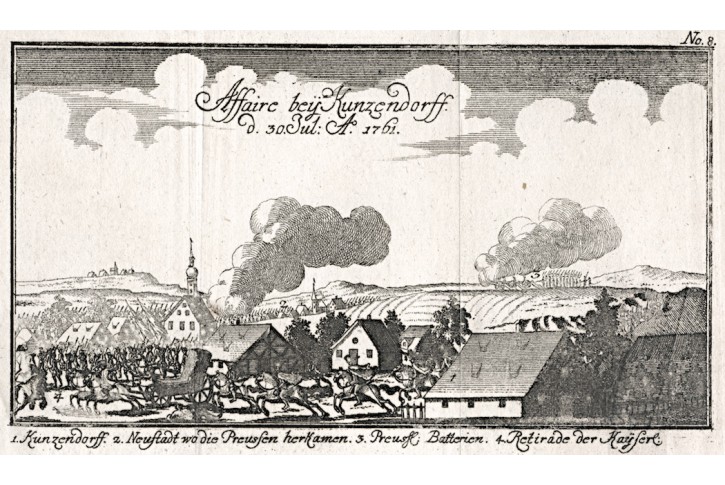 No. 8.
Affaire beÿ Kunzendorff.
d. 30. Jul: Aº 1761.
2
3
4
1. Kunzendorff. 2. Neustadt wo die Preussen herkamen. 3. Preuss. Batterien. 4. Retirade der Kaÿserl.